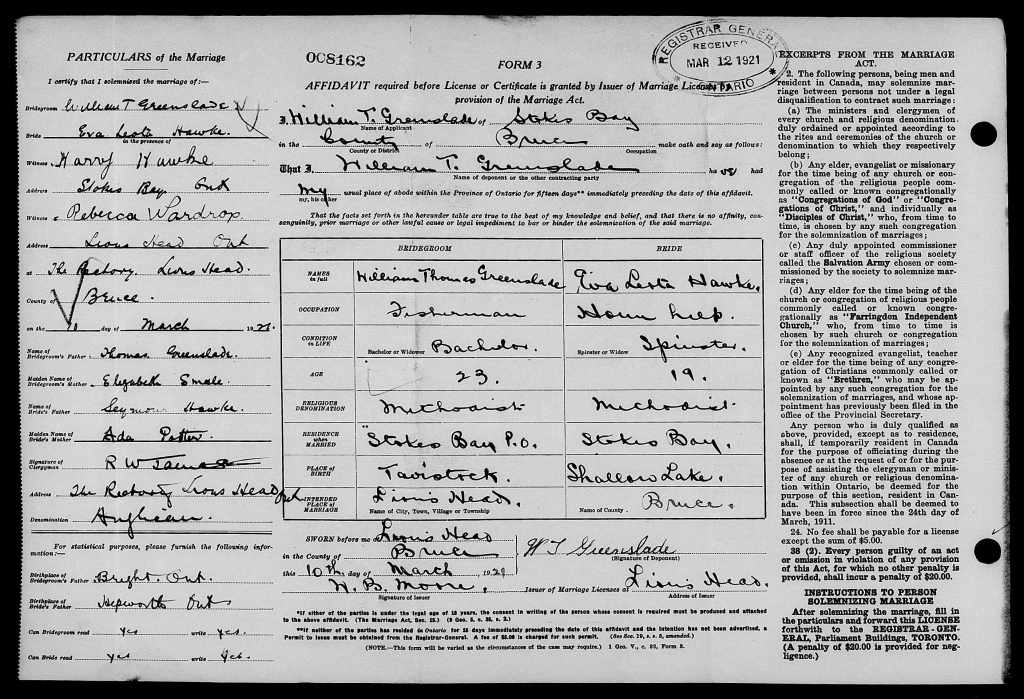 PARTICULARS of the Marriage
I certify that I solemnized the marriage of:—
Bridegroom William T Greenslade
Bride Eva Leota Hawke.
in the presence of
Witness Harry Hawke
Address Stokes Bay Ont
Witness Rebecca Wardrop
Address Lions Head Ont
at The Rectory. Lions Head.
County of Bruce.
on the 10 day of March 1921.
Name of Bridegroom's Father Thomas Greenslade.
Maiden Name of Bridegroom's Mother Elizabeth Smale.
Name of Bride's Father Seymour Hawke.
Maiden Name of Bride's Mother Ada Potter.
Signature of Clergyman R W James
Address The Rectory Lions Head Ont
Denomination Anglican.
For statistical purposes, please furnish following information:—
Birthplace of Bridegroom's Father Bright. Ont.
Birthplace of Bride's Father Hepworth Ont
Can Bridegroom read yes write yes.
Can Bride read yes write yes.
008162
FORM 3
REGISTRAR GENERAL
RECEIVED
MAR 12 1921
ONTARIO
AFFIDAVIT required before License or Certificate is granted by Issuer of Marriage Licenses by
provision of the Marriage Act.
I, William T. Greenslade of Stokes Bay
Name of Applicant
in the County of Bruce make oath and say as follows:
County or District Occupation
That I William T. Greenslade has or had
Name of deponent or the other contracting party
my usual place of abode within the Province of Ontario for fifteen days** immediately preceding the date of this affidavit.
my, his or her
That the facts set forth in the hereunder table are true to the best of my knowledge and belief, and that there is no affinity, consanguinity, prior marriage or other lawful cause or legal impediment to bar or hinder the solemnization of the said marriage.
BRIDEGROOM BRIDE
NAMES in full William Thomas Greenslade Eva Leota Hawke.
OCCUPATION Fisherman House keep.
CONDITION in LIFE Bachelor or Widower Bachelor Spinster or Widow Spinster.
AGE 23. 19.
RELIGIOUS DENOMINATION Methodist Methodist.
RESIDENCE when MARRIED Stokes Bay P.O. Stokes Bay.
PLACE OF BIRTH Tavistock. Shallow Lake.
INTENDED PLACE OF MARRIAGE Lion's Head. Bruce.
Name of City, Town, Village or Township Name of County
SWORN before me at Lion's Head
in the County of Bruce
this 10th day of March 1921
W. B. Moore.
Signature of Issuer
W T Greenslade
(Signature of Deponent)
Issuer of Marriage Licenses at Lion's Head.
Address of Issuer
*If either of the parties is under the legal age of 18 years, the consent in writing of the person whose consent is required must be produced and attached
to the above affidavit. (The Marriage Act, Sec. 15.)
**If neither of the parties has resided in Ontario for 15 days immediately preceding the date of this affidavit and the intention has not been advertised, a
Permit to issue must be obtained from the Registrar-General. A fee of $5.00 is charged for such permit.
(NOTE.—This form will be varied as the circumstances of the case may require.) 1 Geo. V., c. 32, Form 3.
EXCERPTS FROM THE MARRIAGE
ACT.
2. The following persons, being men and
resident in Canada, may solemnize marriage between persons not under a legal
disqualification to contract such marriage:
(a) The ministers and clergymen of
every church and religious denomination
duly ordained or appointed according to
the rites and ceremonies of the church or
denomination to which they respectively
belong;
(b) Any elder, evangelist or missionary
for the time being of any church or congregation of the religious people commonly called or known congregationally
as "Congregations of God" or "Congregations of Christ," and individually as
"Disciples of Christ," who, from time to
time, is chosen by any such congregation
for the solemnization of marriages;
(c) Any duly appointed commissioner
or staff officer of the religious society
called the Salvation Army chosen or commissioned by the society to solemnize marriages;
(d) Any elder for the time being of the
church or congregation of religious people
commonly called or known congregationally as "Farringdon Independent
Church," who, from time to time is
chosen by such church or congregation
for the solemnization of marriages;
(e) Any recognized evangelist, teacher
or elder for the time being of any congregation of Christians commonly called or
known as "Brethren," who may be appointed by any such congregation for the
solemnization of marriages, and whose appointment has previously been filed in the
office of the Provincial Secretary.
Any person who is duly qualified as
above, provided, except as to residence,
shall, if temporarily resident in Canada
for the purpose of officiating during the
absence or at the request of or for the purpose of assisting the clergyman or minister of any church or religious denomination within Ontario, be deemed for the
purpose of this section, resident in Canada. This subsection shall be deemed to
have been in force since the 24th day of
March, 1911.
24. No fee shall be payable for a license
except the sum of $5.00.
38 (2). Every person guilty of an act
or omission in violation of any provision
of this Act, for which no other penalty is
provided, shall incur a penalty of $20.00.
INSTRUCTIONS TO PERSON
SOLEMNIZING MARRIAGE
After solemnizing the marriage, fill in
the particulars and forward this LICENSE
forthwith to the REGISTRAR-GENERAL, Parliament Buildings, TORONTO.
(A penalty of $20.00 is provided for negligence.)